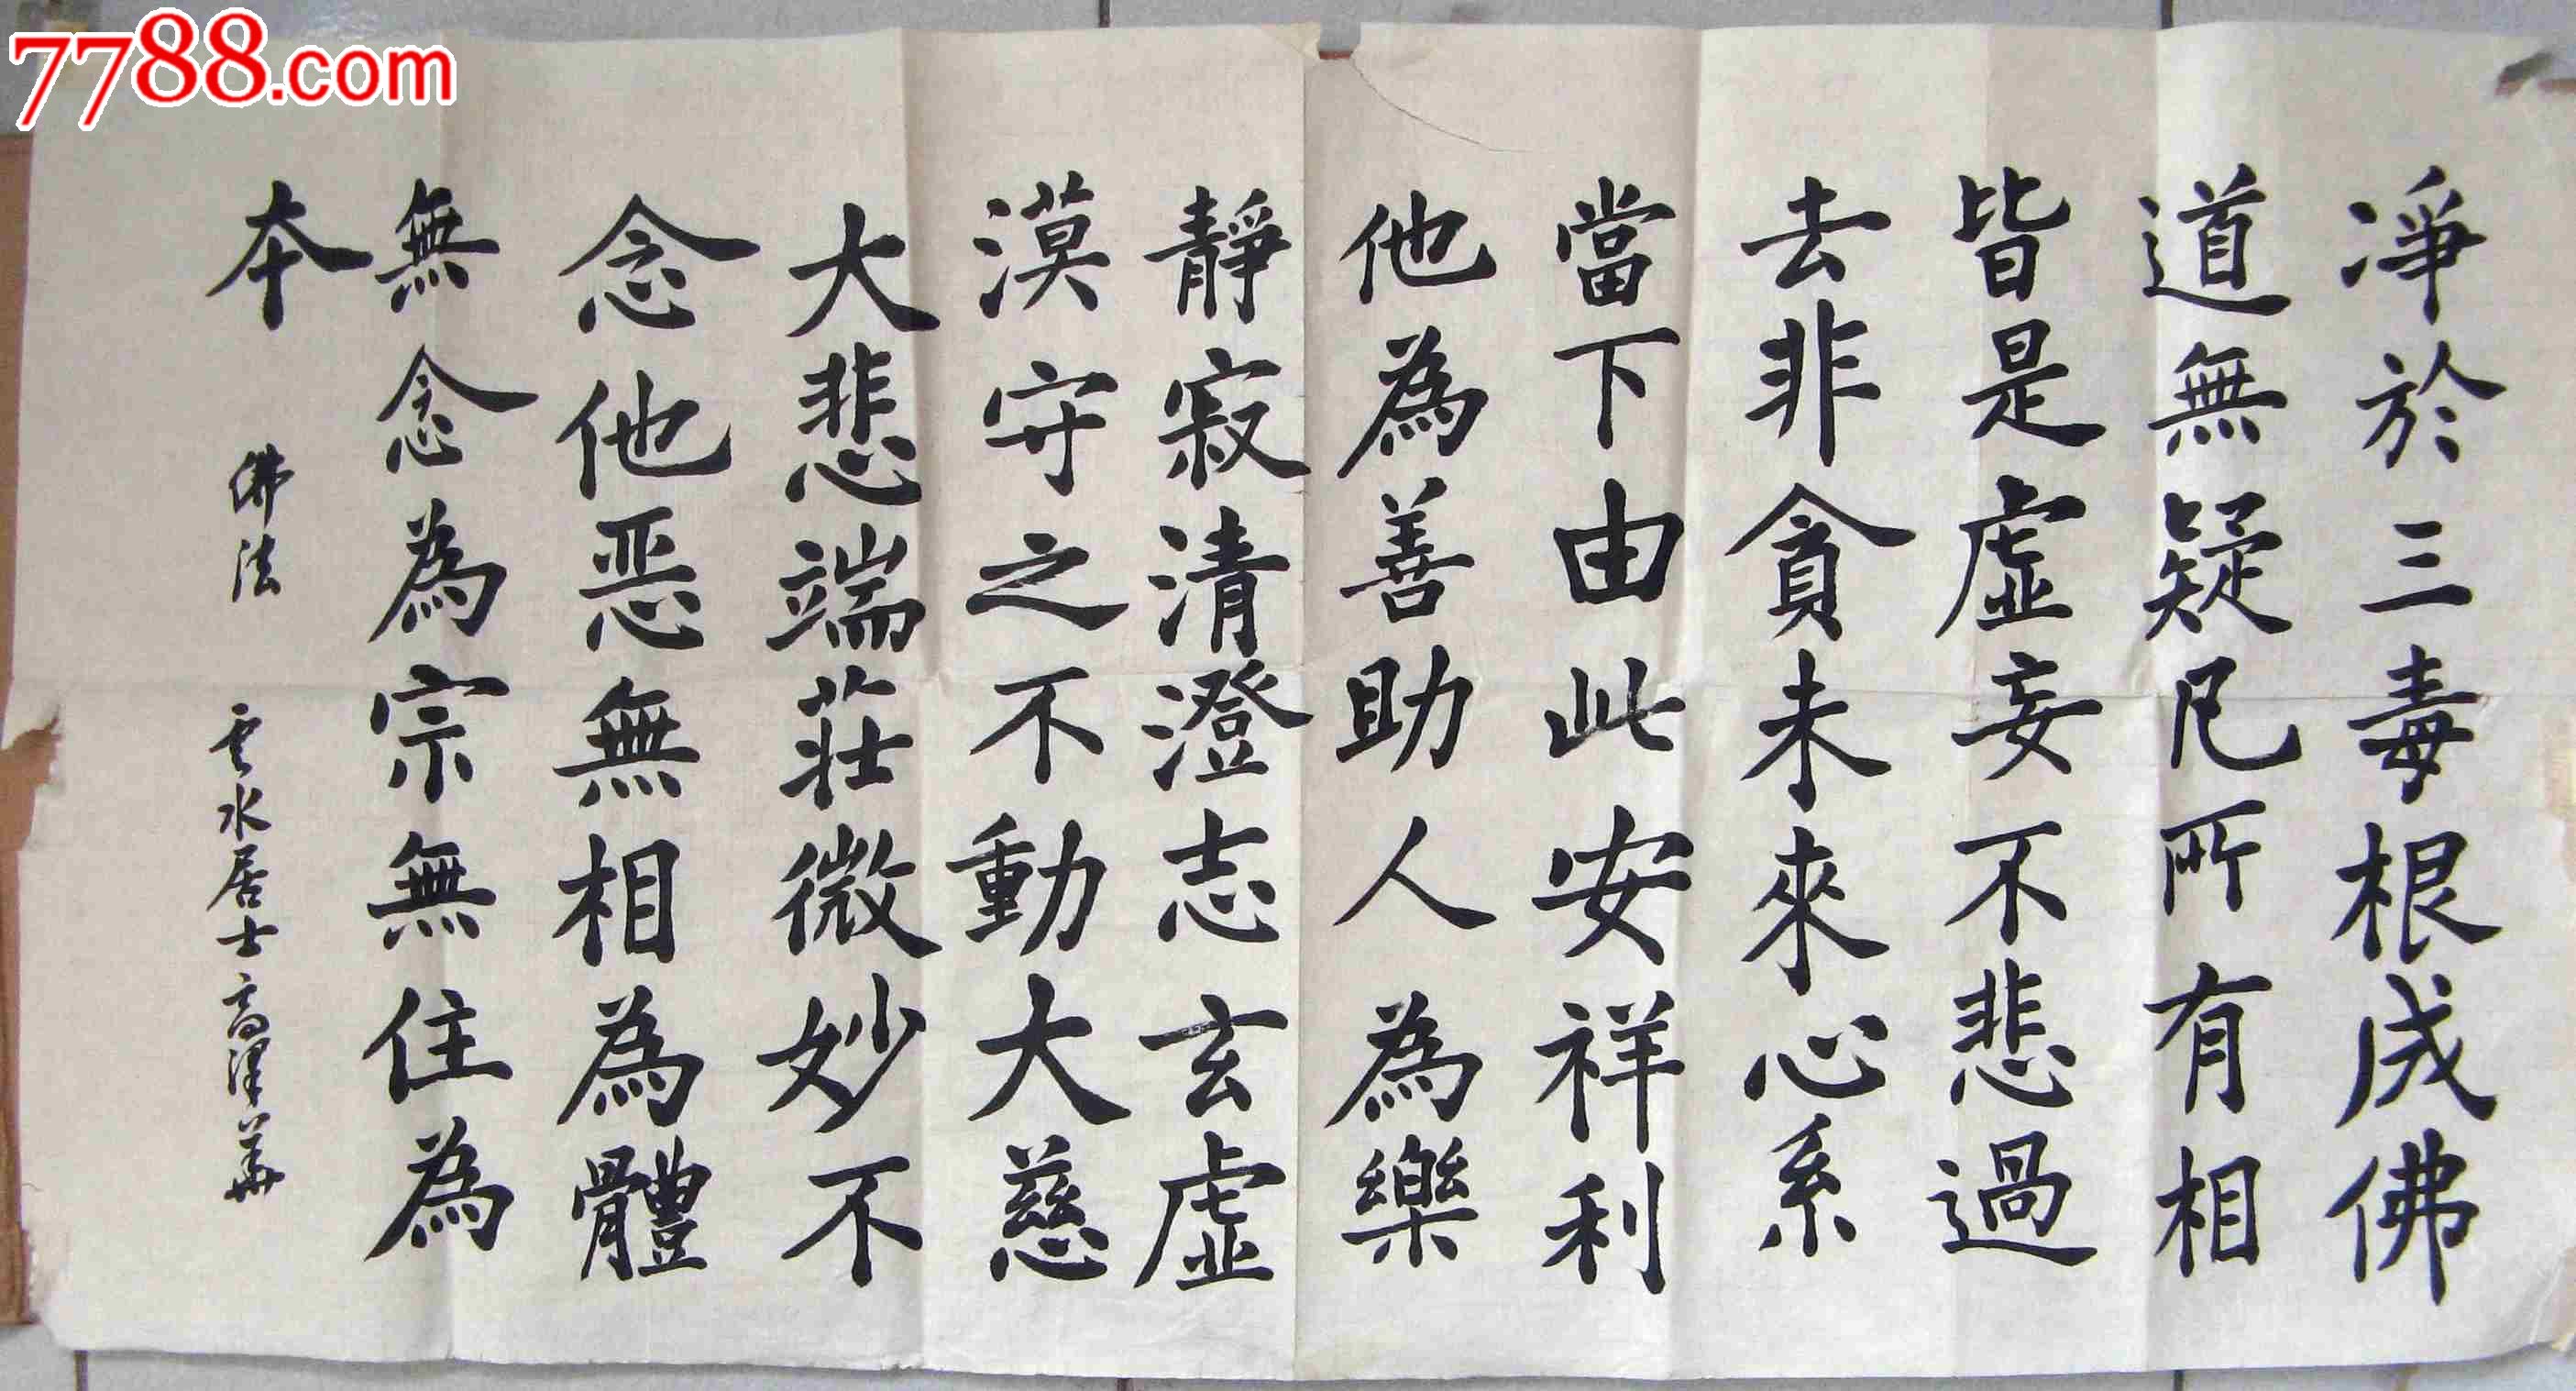 7788.com
淨於三毒根成佛
道無疑凡所有相
皆是虛妄不悲過
去非貪未來心系
當下由此安祥利
他為善助人為樂
靜寂清澄志玄虛
漠守之不動大慈
大悲端莊微妙不
念他恶無相為體
無念為宗無住為
本
佛法
雲水居士高澤華